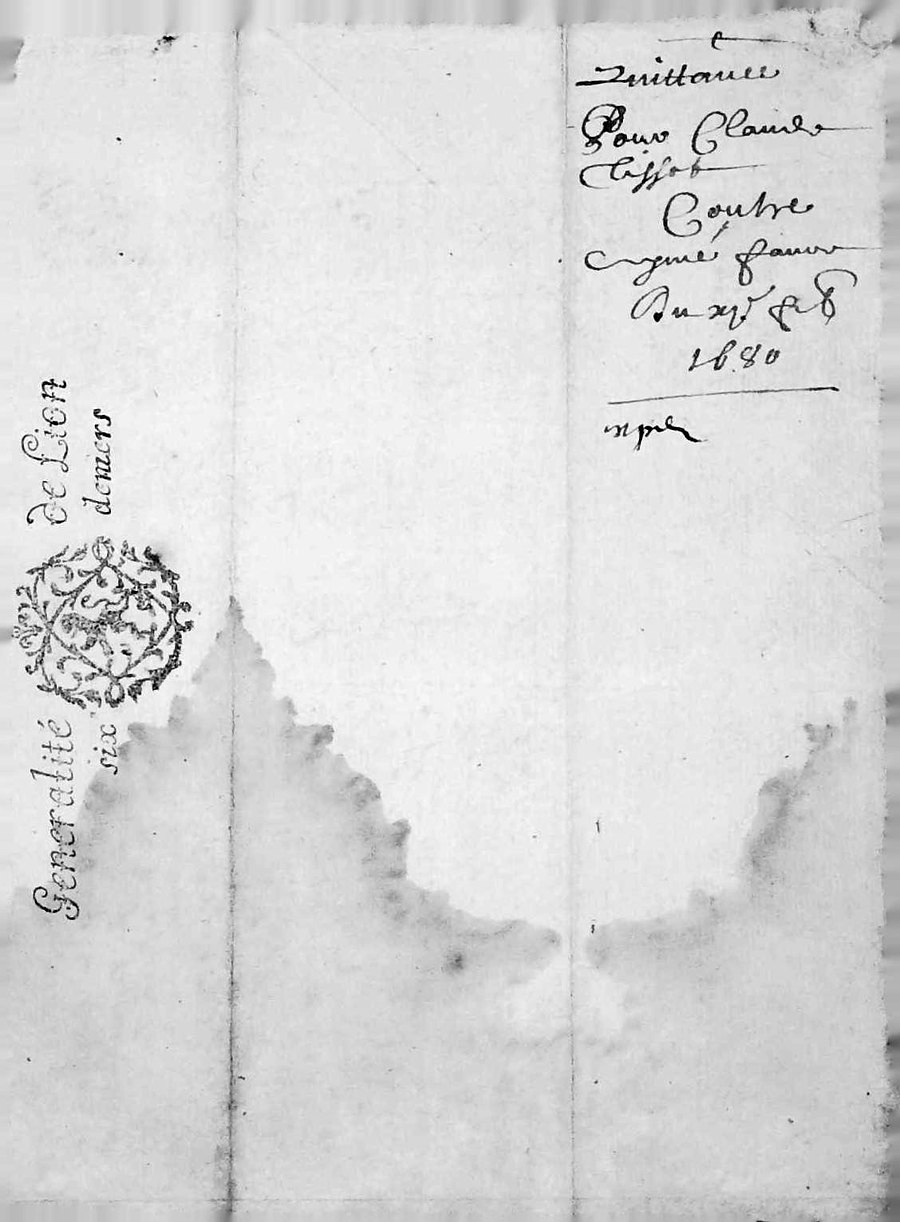 Quittance
Pour Claude
Tissot
Contre
Aymé faure
Du xje feb
1680
Generalité de Lion
six deniers